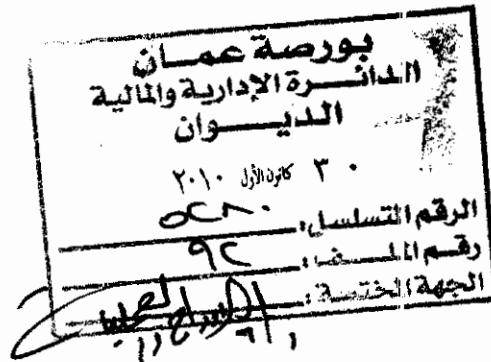 بورصة عمان
الدائرة الإدارية والمالية
الديوان
٣٠ كانون الأول ٢٠١٠
الرقم التسلسلي: ٥٢٨٠
رقم الملف: ٩٢
الجهة المختصة: